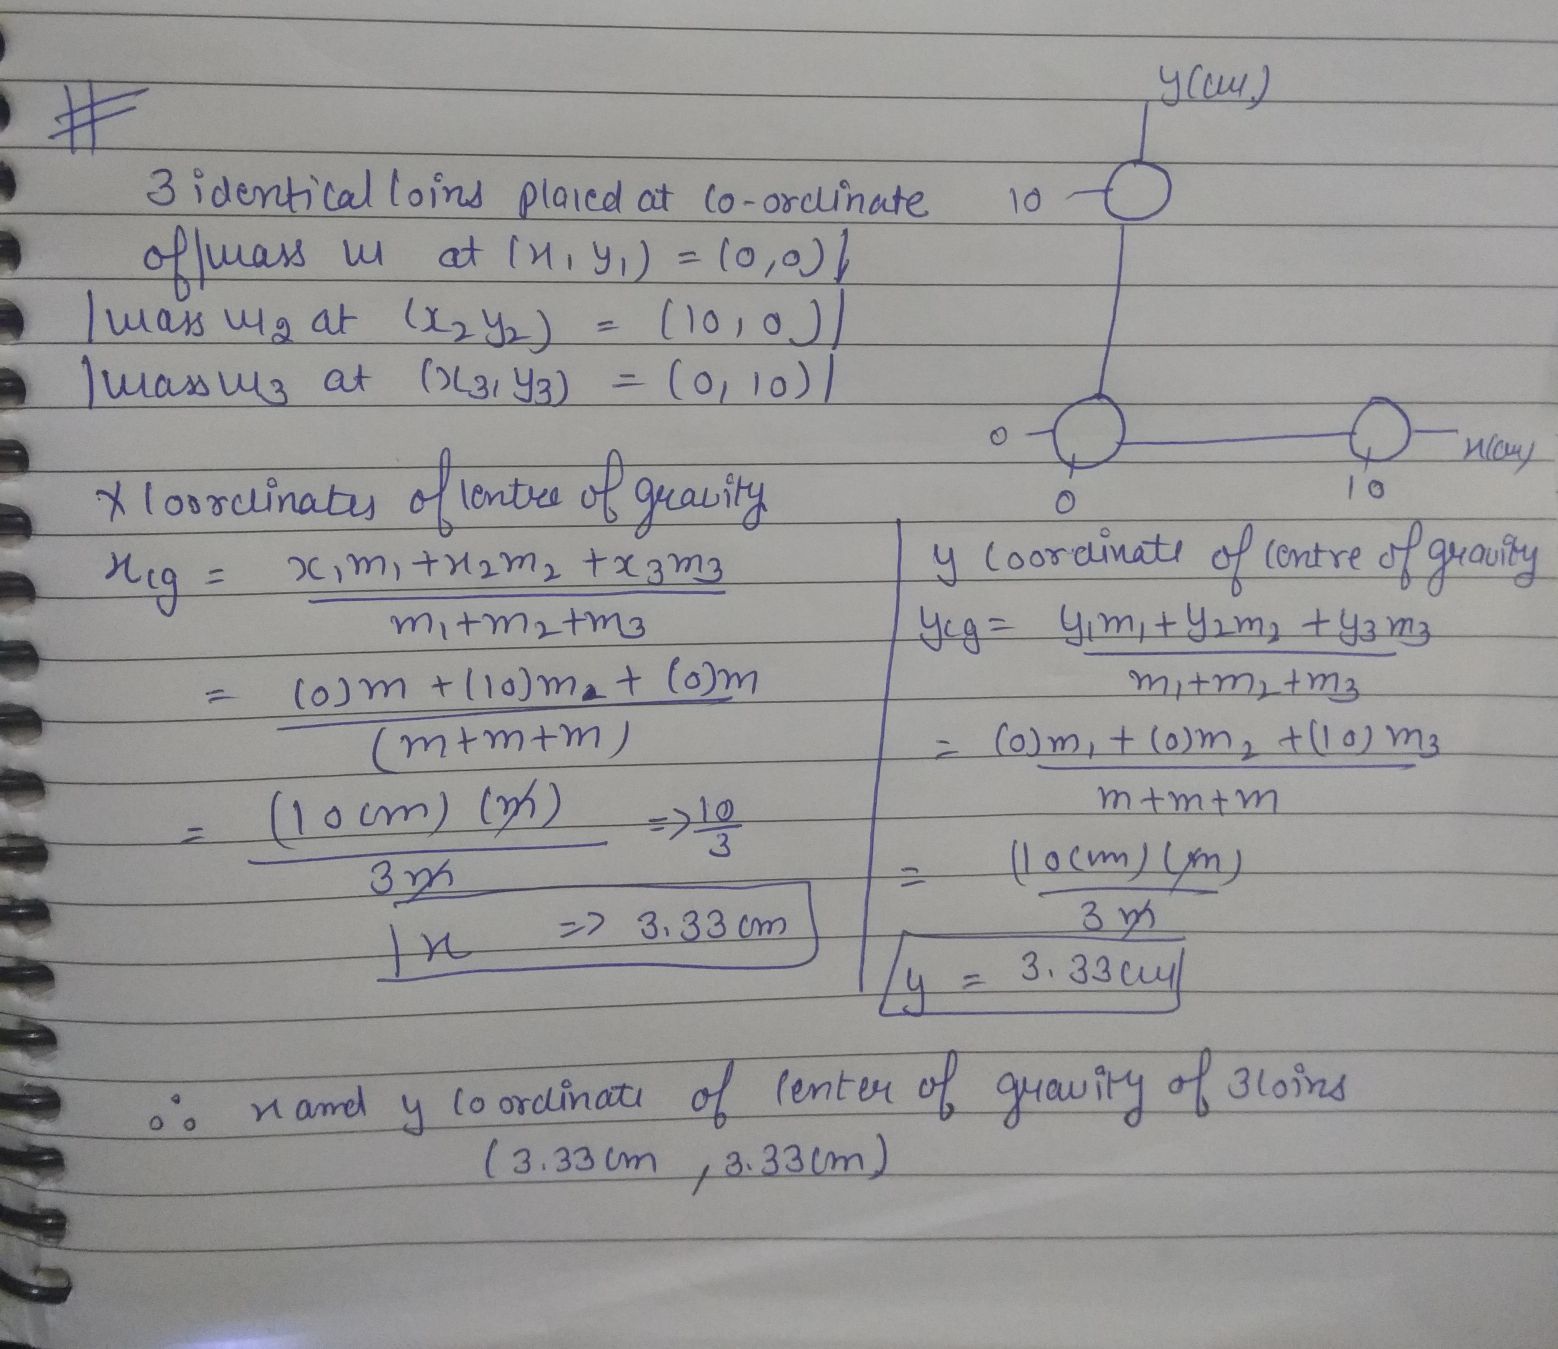 #
y(cm)
3 identical coins placed at co-ordinate
10
of mass m at (x1 y1) = (0,0)
mass m2 at (x2 y2) = (10,0)
mass m3 at (x3, y3) = (0, 10)
0
x(cm)
0
10
X coordinates of centre of gravity
xcg = x1m1+x2m2 +x3m3
m1+m2+m3
= (0)m +(10)m2 + (0)m
(m+m+m)
= (10cm) (m) => 10
3m 3
x => 3.33 cm
y coordinate of centre of gravity
ycg = y1m1+y2m2 +y3m3
m1+m2+m3
= (0)m1 + (0)m2 +(10) m3
m+m+m
= (10cm) (m)
3m
y = 3.33cm
∴ x and y coordinate of center of gravity of 3 coins
(3.33 cm , 3.33cm)